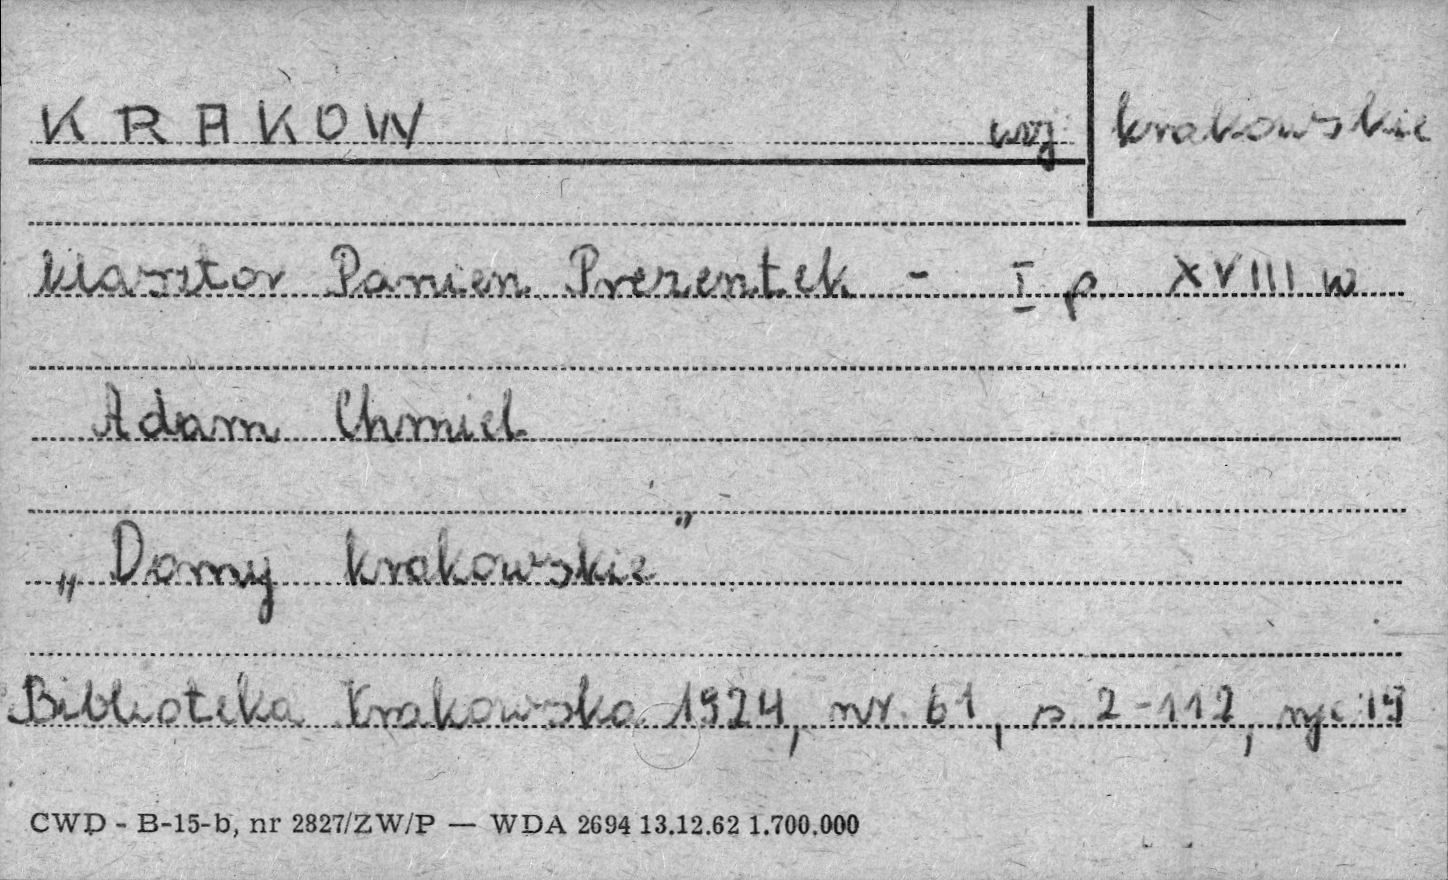 KRAKOW woj krakowskie
klasztor Panien Prezentek - I p XVIII w
Adam Chmiel
„Domy krakowskie”
Biblioteka Krakowska 1924, nr. 61, s 2-112, ryc 19
CWD - B-15-b, nr 2827/ZW/P — WDA 2694 13.12.62 1.700.000